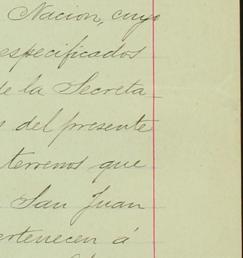 Nacion, cuyo
especificados
de la Secreta
del presente
terrenos que
San Juan
ertenecen á